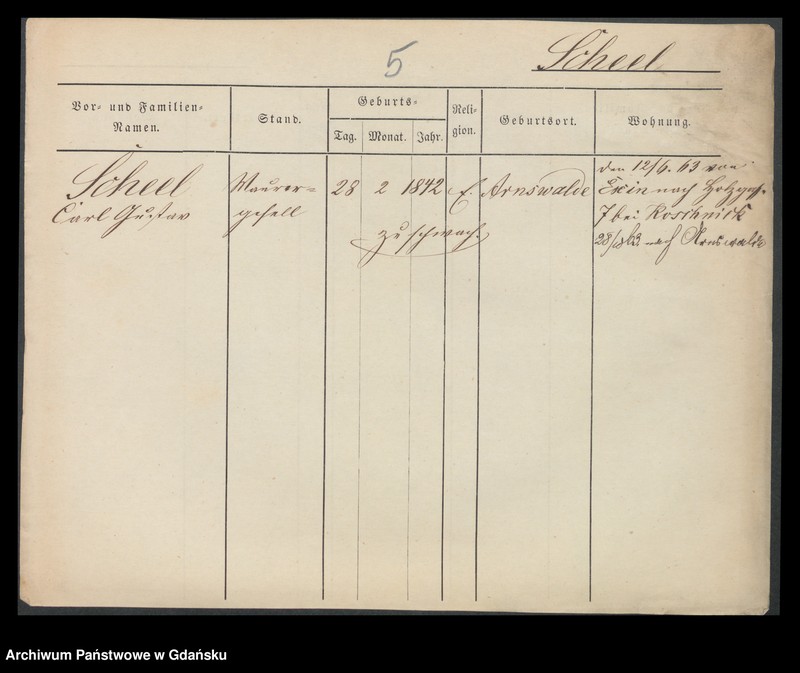 5
Scheel
Vor- und Familien-
Namen.
Stand.
Geburts-
Tag.
Monat.
Jahr.
Reli-
gion.
Geburtsort.
Wohnung.
Scheel
Carl Gustav
Maurer-
gesell
28
2
1842
E.
Arnswalde
zu schwach.
den 12/6. 63 von
Exin nach Holzg.
7 bei Roschnick
28/8 63 nach Arnswalde
Archiwum Państwowe w Gdańsku